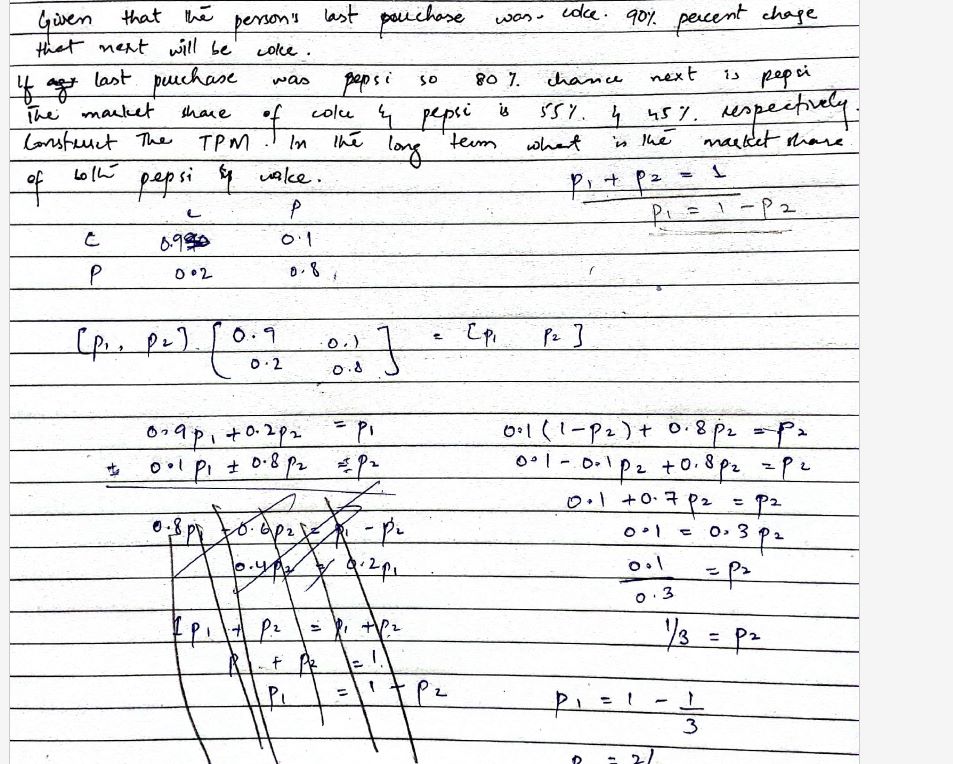 Given that the person's last pouchase was. coke. 90% percent chage
that next will be coke.
If last puchase was pepsi so 80%. chance next is pepsi
The market share of coke & pepsi is 55%. & 45%. respectively.
Construct The TPM. In the long term what is the market share
of both pepsi & coke.
p1 + p2 = 1
p1 = 1 - p2
c P
C 0.9 0.1
P 0.2 0.8
[p1, p2] [0.9 0.1 = [p1 p2]
0.2 0.8]
0.9p1 + 0.2p2 = p1
± 0.1p1 ± 0.8p2 = p2
0.8p1 - 0.6p2 = p1 - p2
0.4p2 = 0.2p1
1p1 + p2 = p1 + p2
p1 + p2 = 1.
p1 = 1 - p2
0.1(1-p2) + 0.8p2 = p2
0.1 - 0.1p2 + 0.8p2 = p2
0.1 + 0.7p2 = p2
0.1 = 0.3p2
0.1/0.3 = p2
1/3 = p2
p1 = 1 - 1/3